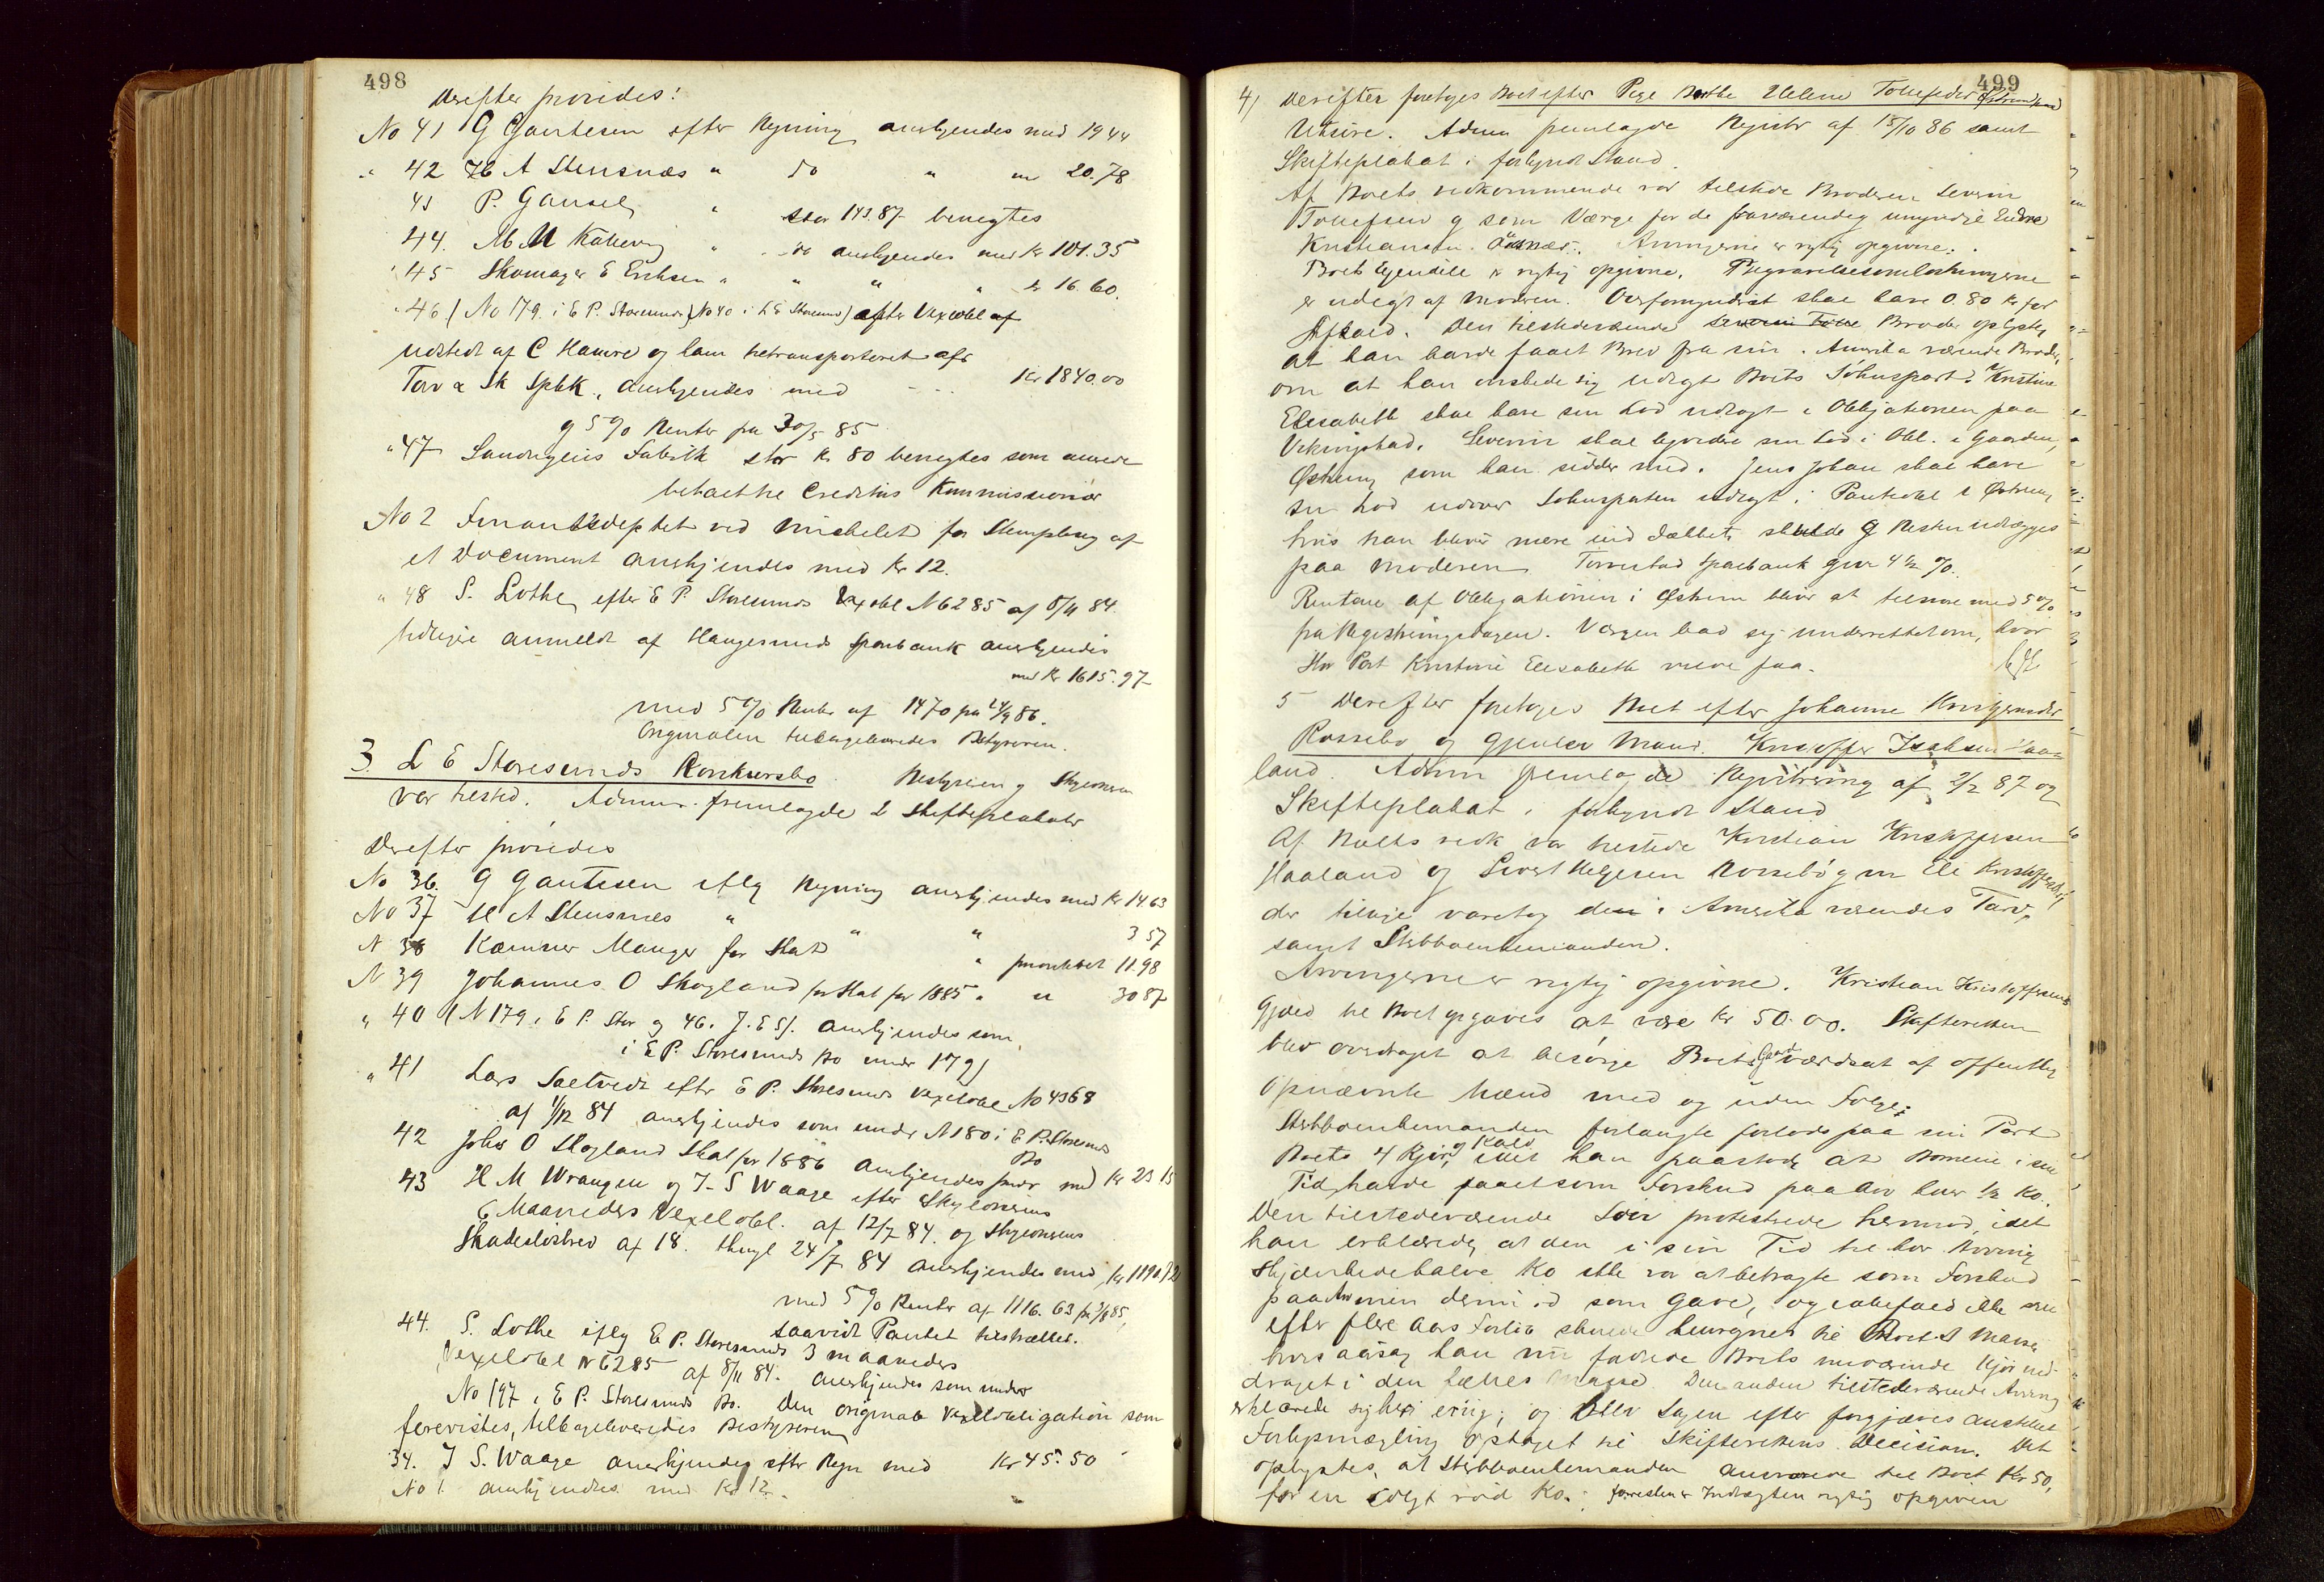 498
Derefter prøvedes:
No 41 G Gautesen efter Regning anerkjendes med 19 44
" 42 H A Stensnæs " do " " 20.78
43 P. Gausel " stor 143.87 benegtes
44. M M Kallevig " do anerkjendes med Kr 101.35
" 45 Skomager E Eriksen " " " " Kr 16.60.
" 46 (No 179 i E P. Storesunds) (No 40 i L E Storesund) efter Vexelobl af
udstedt af C Hamre og ham retransporteret afs
Torv a Sk Spbk., anerkjendes med - - - Kr 1840.00
og 5 % Renter fra 30/5 85
" 47 Sandnæs Fabrik stor Kr 80 benegtes som
betalt til Creditors Kommissionær
No 2 Finantsdeptet ved Michelet for Stempling af
et Document anerkjendes med Kr 12.
" 48 S. Lothe efter E P. Storesunds Vexelobl N 6285 af 8/11 84.
tidligere anmeldt af Haugesunds Sparebank anerkjendes
med Kr 1615.97
med 5 % Renter af 1470 fra 24/9 86.
Originalen tilbageleveredes Bestyreren.
3. L E Storesunds Konkursbo. Bestyreren og Skyldneren
var tilsted. Admin. fremlagde 2 Skifteplakater
Derefter prøvedes
No 36. G Gautesen iflg Regning anerkjendes med Kr 14.63
No 37 H A Stensnæs " " " 3 57
N 38 Kæmner Mauger for Skat " prioritet 11.98
N 39 Johannes O Skogland for Skat for 1885 " " 30 87
" 40 (N 179 i E P. Stor og 46. J. E S). anerkjendes som
i E P. Storesunds Bo under 179)
" 41 Lars Sætvedt efter E P. Storesunds Vexelobl No 4368
af 1/12 84 anerkjendes som under N 180 i E P. Storesunds
Bo
42 Johs O Skogland Skat for 1886 anerkjendes prior med Kr 23 15
43 H M Wrangen og J. S Waage efter Skyldnerens
6 Maaneders Vexelobl. af 12/7 84. og Skyldnerens
Skadesløsbrev af 18. thingl 24/7 84 anerkjendes med Kr 1190.12
med 5 % Renter af 1116.63 fra 3/8 85,
saavidt Pantet tilstrækker.
44. S. Lothe iflg E P. Storesunds 3 maaneders
Vexelobl N 6285 af 8/11 84. anerkjendes som under
No 197 i E P. Storesunds Bo. Den originale Vexelobligation som
forevistes, tilbageleveredes Bestyreren
34. J S. Waage anerkjendes efter Regn med Kr 45.50
No 1. anerkjendes med Kr 12.
499
4) Derefter foretoges Boet efter Pige Berthe Helene Tollefsdtr
Utsire. Admin fremlagde Registr af 15/10 86 samt
Skifteplakat i forkyndt Stand.
Af Boets vedkommende var tilstede Broderen Severin
Tollefsen og som Værge for de fraværendes umyndige Endre
Kristiansen. Arvingerne er rigtig opgivne.
Boets Ejendele er rigtig opgivne. Begravelsesomkostningerne
er udlagt af Moderen. Overformynderiet skal have 0.80 Kr for
Afskd. Den tilstedeværende Broder oplyste,
at han havde faaet Brev fra sin i Amerika værende Broder,
om at han ønskede sig udlagt Boets Søhuspart. Kristine
Elisabeth skal have sin Lod udlagt i Obligationen paa
Vikingstad. Severin skal ligeledes sin Lod i Obl. i Gaarden
Østrem som han sidder med. Jens Johan skal have
sin Lod udover Søhusparten udlagt i Panteobl i Østrem,
hvis han bliver mere end skulde og Resten udlægges
paa Moderen. Torvestad Sparebank giver 4 1/2 %.
Renten af Obligationen i Østrem bliver at tilsvare med 5 %
fra Registreringsdagen. Værgen bad sig underrettet om, hvor
stor Part Kristine Elisabeth maae faa.
5 Derefter foretoges Boet efter Johanne Kristensdtr
Rossebø og gjenlev Mand. Kristoffer Isaksen Haa-
land. Admin fremlagde Registrering af 2/2 87 og
Skifteplakat i forkyndt Stand
Af Boets vedk var tilstede Kristian Kristoffersen
Haaland og Sivert Helgesen Rossebø gm Eli Kristoffersdtr,
der tillige varetog den i Amerika værendes Tarv,
samt Stervboenkemanden.
Arvingerne er rigtig opgivne. Kristian Kristoffersens
Gjæld til Boet opgaves at være Kr 50.00. Skifteretten
blev overdraget at besørge Boets Gaard værdsat af offentlig
opnævnte Mænd med og uden Følge.
Stervboenkemanden forlangte forlods paa sin Part
Boets 4 Kjør, og Kalv idet han paastod at Børnene i sin
Tid havde faaet som Forskud paa Arv hver 1/2 Ko.
Den tilstedeværende Søn protesterede hermod, idet
han erklærede, at den i sin Tid til hver Arving
skjænkede halve Ko ikke var at betragte som Forskud
paa Arv men derimod som Gave, og i alfald ikke nu
efter flere Aars Forløb skulde henregnes til Boets Masse,
hvorsaarsag han nu fordrede Boets nuværende Kjør ind-
draget i den fælles Masse. Den anden tilstedeværende Arving
erklærede sig heri enig; og blev Sagen efter forgjæves anstillet
Forligsmægling optaget til Skifterettens Decision. Det
oplystes, at Stervboenkemanden ansvarede til Boet Kr 50,
for en solgt rød Ko. forresten er Indtægten rigtig opgiven